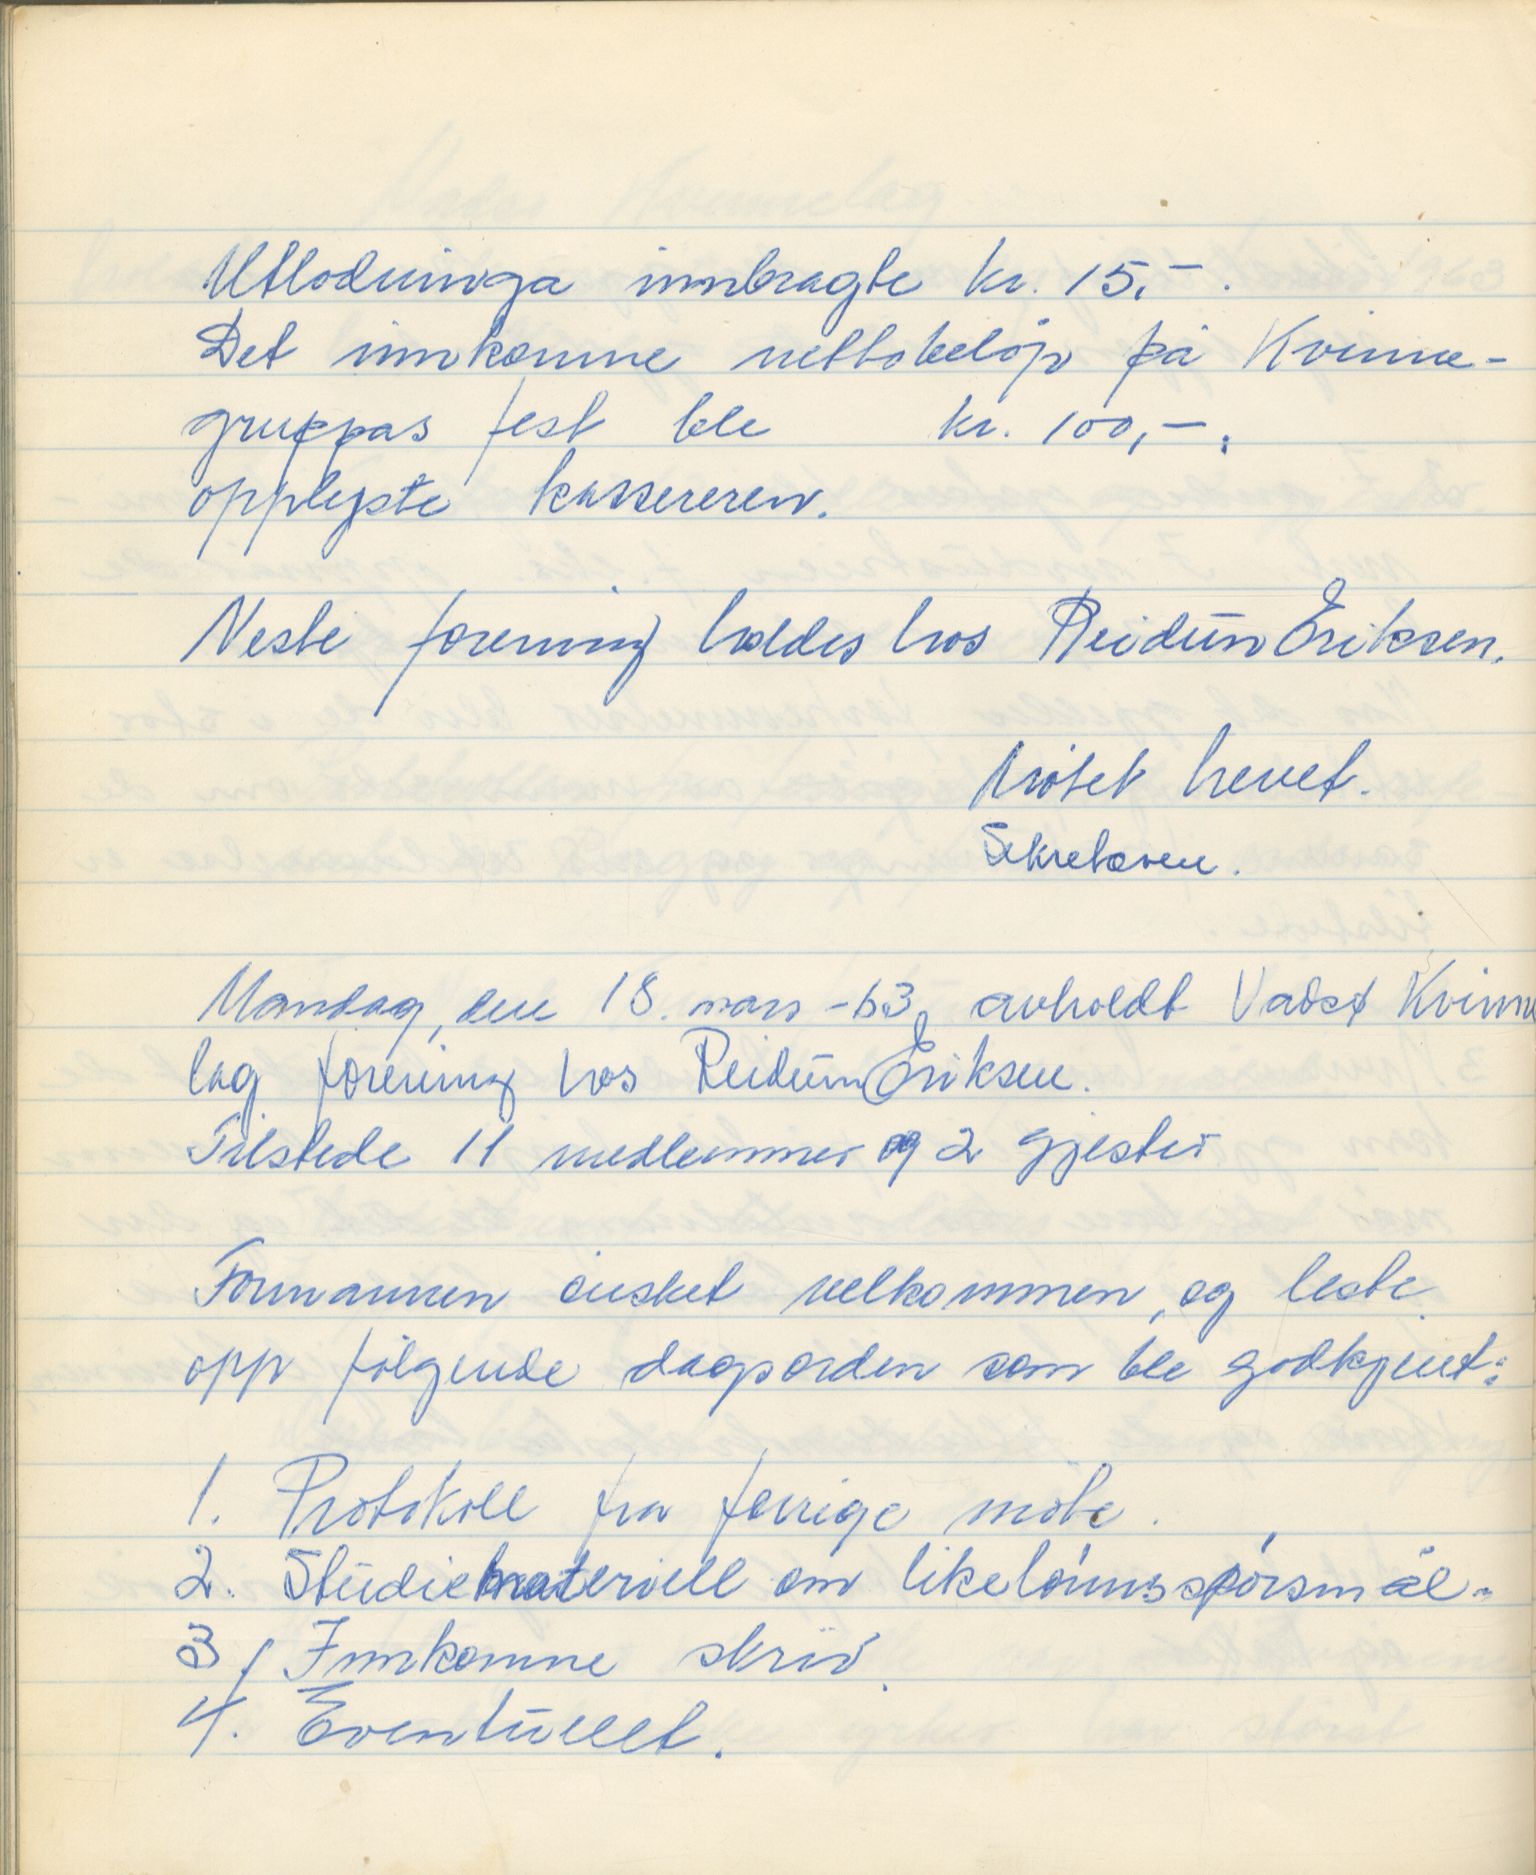 Utlodninga innbragte kr. 15,-.
Det innkomne nettobeløp på Kvinne-
gruppas fest ble kr. 100,-,
opplyste kassereren.
Neste forening holdes hos Reidun Eriksen.
Møtet hevet.
Sekretæren.
Mandag, den 18. mars -63, avholdt Vadsø Kvinne
lag forening hos Reidun Eriksen.
Tilstede 11 medlemmer og 2 gjester
Formannen ønsket velkommen, og leste
opp følgende dagsorden som ble godkjent:
1. Protokoll fra forrige møte.
2. Studiemateriell om likelønnsspørsmål.
3. Innkomne skriv.
4. Eventuellt.